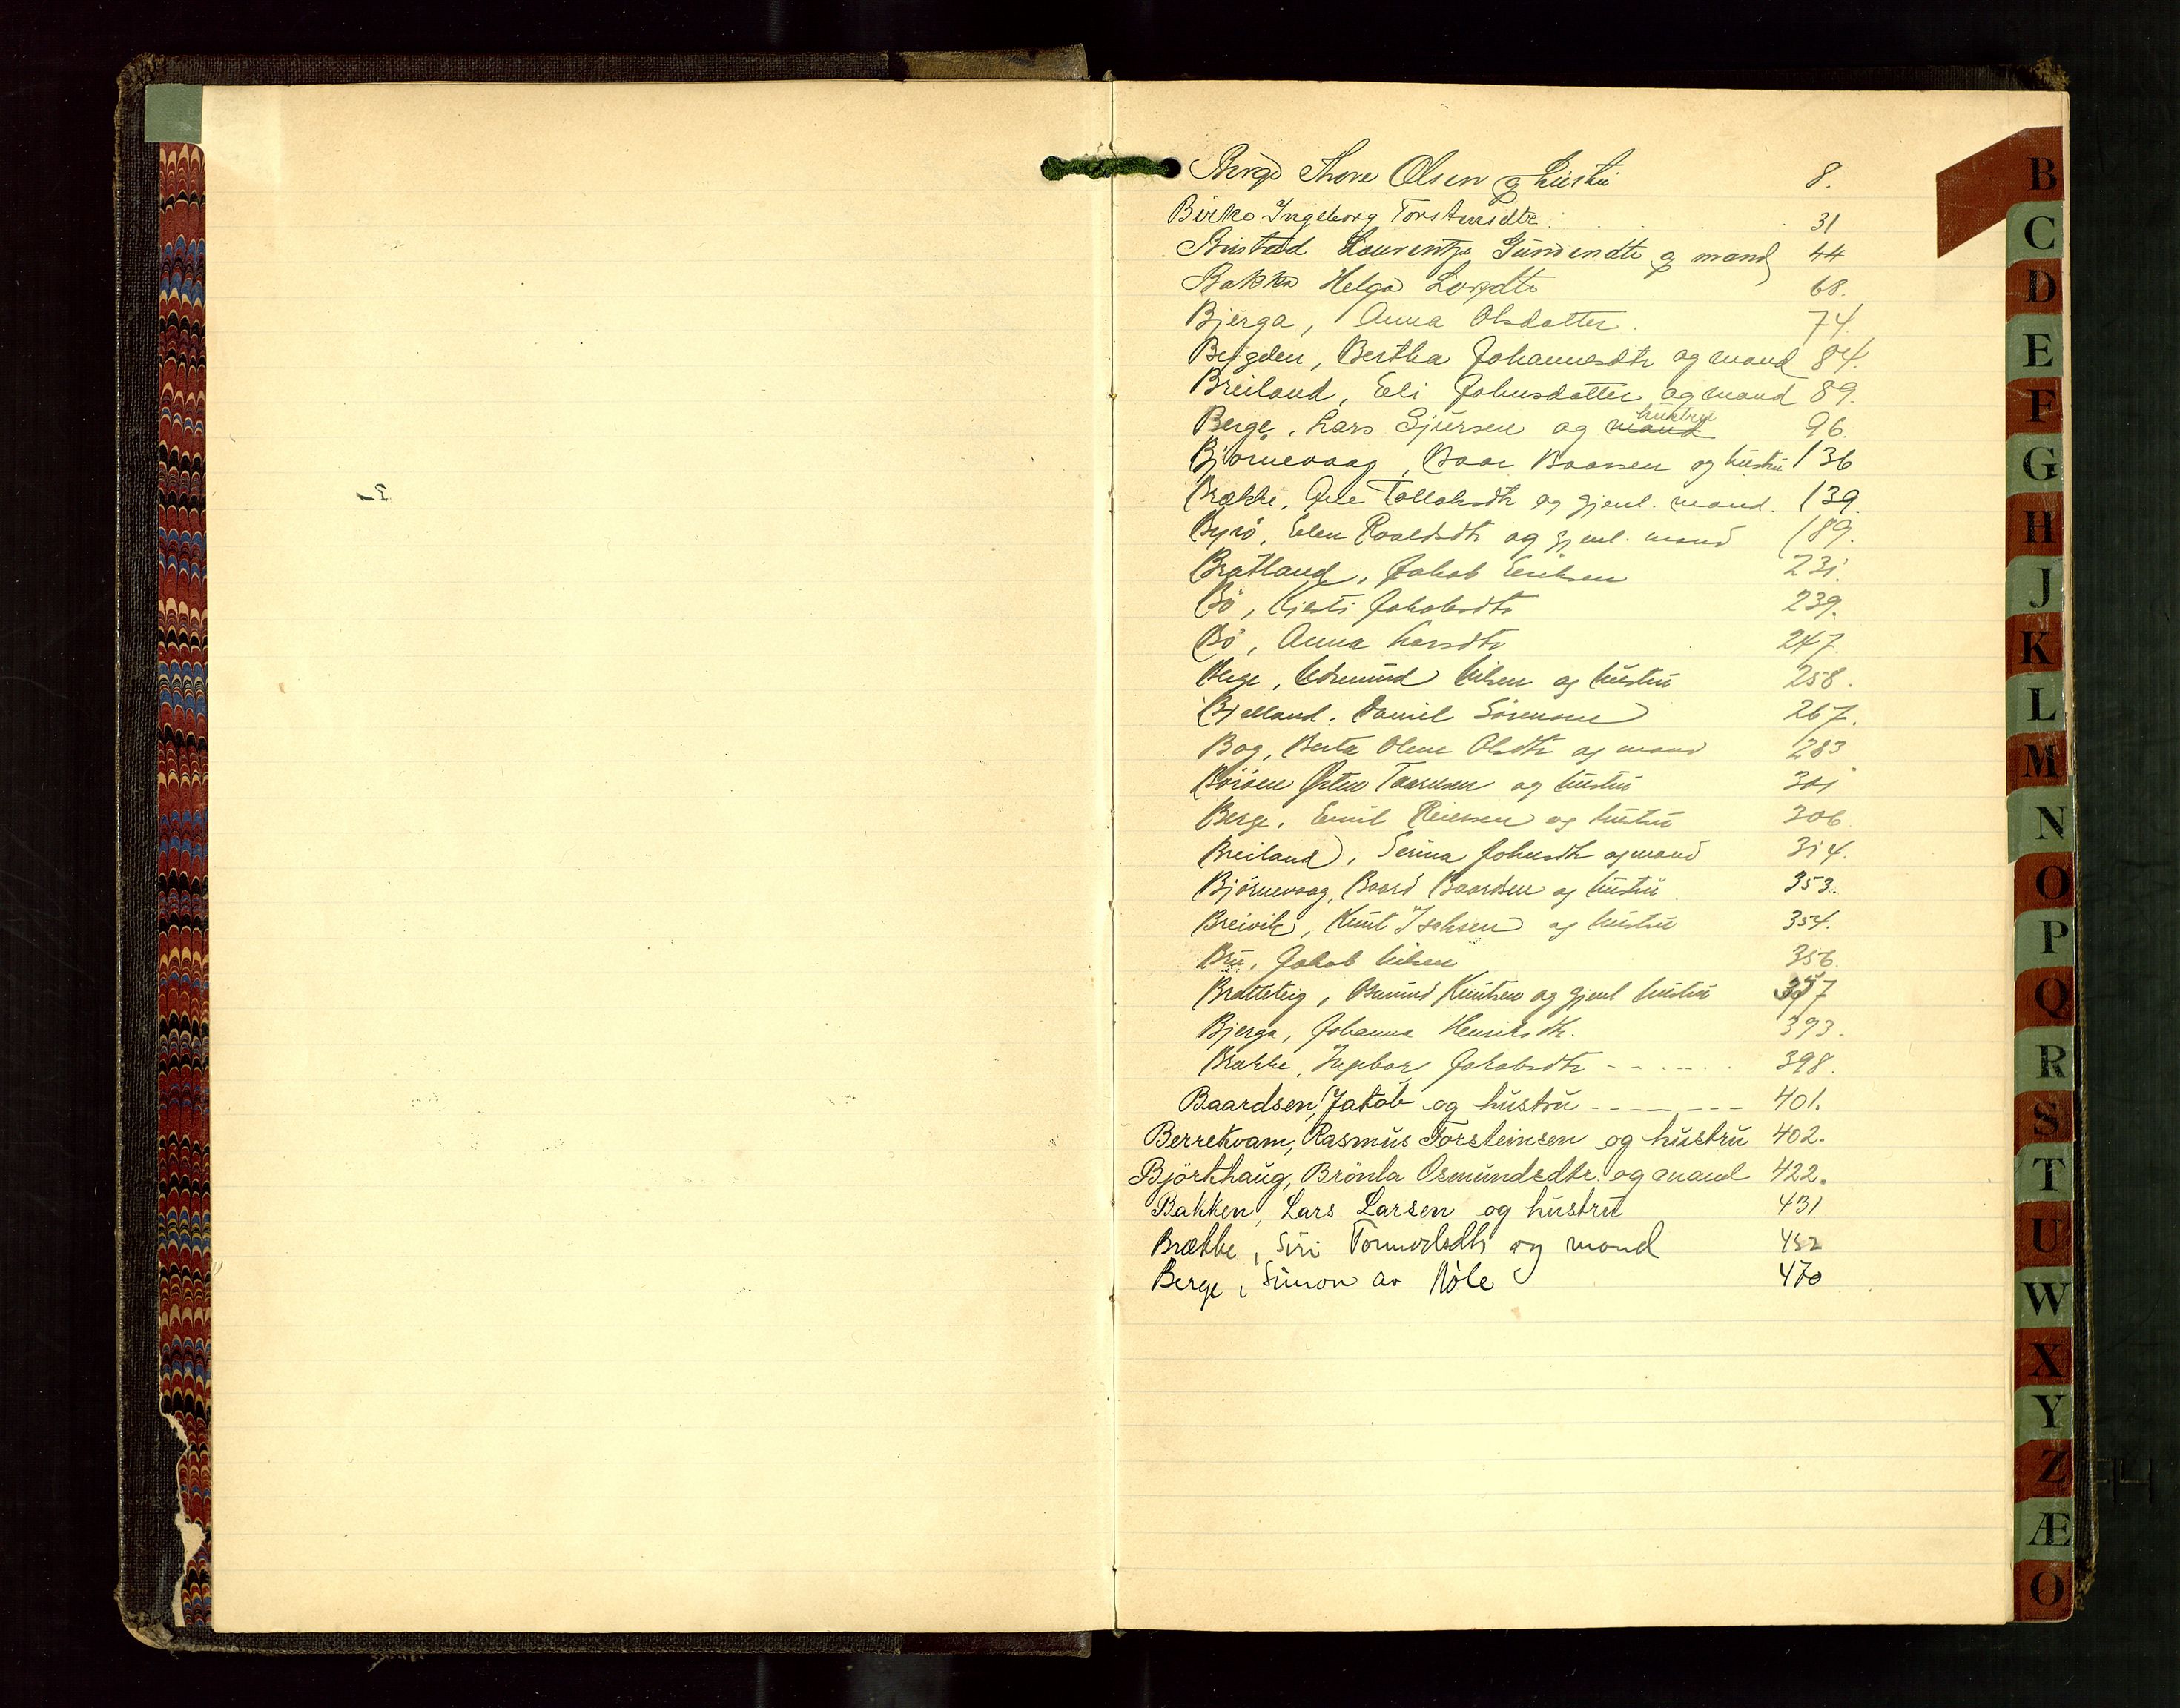 Berge Thore Olsen og hustru 8.
Birke Ingeborg Torstensdtr. 31
Laurentze Gundersdtr og mand 44
Bakka Helga Larsdtr 68.
Bjerga, Anna Olsdatter. 74.
Bygden, Bertha Johannesdtr og mand 84.
Breiland, Eli Johnsdatter og mand 89.
hustru
Berge, Lars Sjursen og mand 96.
Bjørnevaag, Baar Baarsen og hustru 136
Brække, Tollaksdtr og gjenl. mand. 139.
Byrö, Elen Roaldsdtr og gjenl. mand 189.
Bratland, Jakob Eriksen 231.
Bö, Kjersti Jakobsdtr 239.
Bö, Anna Larsdtr 247.
Berge, Edmund Nilsen og hustru 258.
Bjelland, Daniel Sörensen 267.
Bog, Berta Olene Olsdtr og mand 283
Østen og hustru 301
Berge, Emil Reiersen og hustru 306
Breiland, Serina Johnsdtr og mand 314.
Bjørnevaag, Baard Baardsen og hustru 353.
Breivik, Knut Isaksen og hustru 354.
Bru, Jakob Nilsen 356.
Bratteteig, Osmund Knutsen og gjenl hustru 357
Bjerga, Johanna Henriksdtr. 393.
Brække, Ingebor Jakobsdtr - - - - - - 398.
Baardsen, Jakob og hustru - - - - - - - 401.
Berrekvam, Rasmus Torsteinsen og hustru 402.
Björkhaug, Brönla Osmundsdtr. og mand 422.
Bakken, Lars Larsen og hustru 431
Brække, Siri Tormodsdtr og mand 452
Berge, Simon av Nöle 470
B
C
D
E
F
G
H
J
K
L
M
N
O
P
Q
R
S
T
U
W
X
Y
Z
Æ
Ø